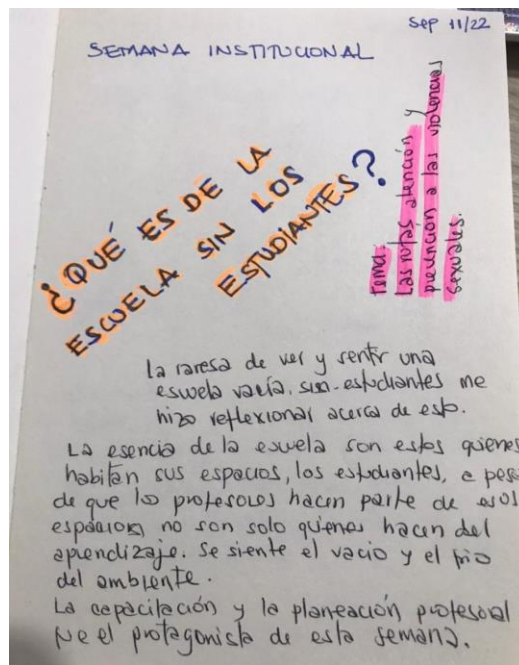 Sep 11/22
SEMANA INSTITUCIONAL
¿QUÉ ES DE LA
ESCUELA SIN LOS
ESTUDIANTES?
Tema:
prevención
sexuales.
la raresa de ver y sentir una
escuela vacía, sin estudiantes me
hizo reflexionar acerca de esto.
La esencia de la escuela son estos quienes
habitan sus espacios, los estudiantes, a pesa
de que lo profesores hacen parte de esos
espacios no son solo quienes hacen del
aprendizaje. Se siente el vacio y el frio
del ambiente.
La capacitación y la planeación profesoral
fue el protagonista de esta semana.